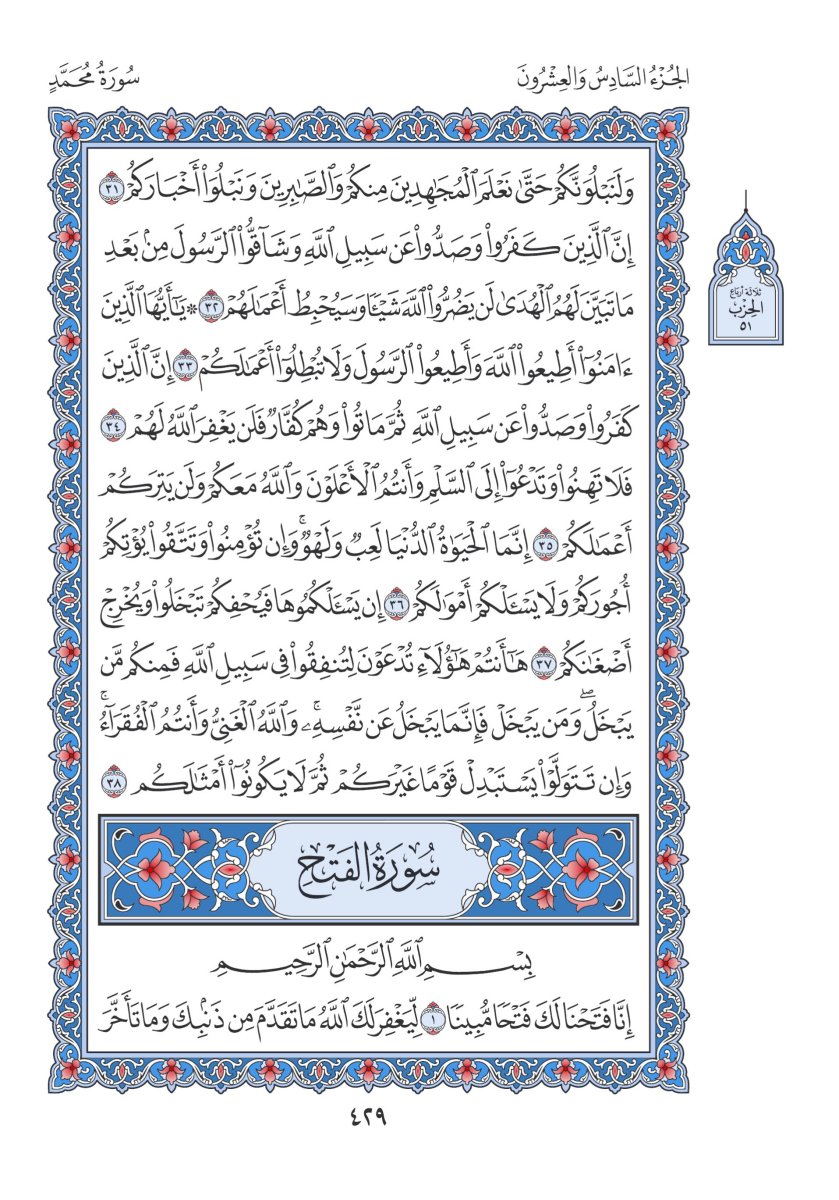 الجُزْءُ السَّادِسُ وَالعِشْرُونَ
سُورَةُ مُحَمَّدٍ
وَلَنَبْلُوَنَّكُمْ حَتَّىٰ نَعْلَمَ ٱلْمُجَـٰهِدِينَ مِنكُمْ وَٱلصَّـٰبِرِينَ وَنَبْلُوَا۟ أَخْبَارَكُمْ ٣١
إِنَّ ٱلَّذِينَ كَفَرُوا۟ وَصَدُّوا۟ عَن سَبِيلِ ٱللَّهِ وَشَآقُّوا۟ ٱلرَّسُولَ مِنۢ بَعْدِ
مَا تَبَيَّنَ لَهُمُ ٱلْهُدَىٰ لَن يَضُرُّوا۟ ٱللَّهَ شَيْـًٔا وَسَيُحْبِطُ أَعْمَـٰلَهُمْ ٣٢ * يَـٰٓأَيُّهَا ٱلَّذِينَ
ثلاثة أرباع
الحِزْبِ
٥١
ءَامَنُوٓا۟ أَطِيعُوا۟ ٱللَّهَ وَأَطِيعُوا۟ ٱلرَّسُولَ وَلَا تُبْطِلُوٓا۟ أَعْمَـٰلَكُمْ ٣٣ إِنَّ ٱلَّذِينَ
كَفَرُوا۟ وَصَدُّوا۟ عَن سَبِيلِ ٱللَّهِ ثُمَّ مَاتُوا۟ وَهُمْ كُفَّارٌ فَلَن يَغْفِرَ ٱللَّهُ لَهُمْ ٣٤
فَلَا تَهِنُوا۟ وَتَدْعُوٓا۟ إِلَى ٱلسَّلْمِ وَأَنتُمُ ٱلْأَعْلَوْنَ وَٱللَّهُ مَعَكُمْ وَلَن يَتِرَكُمْ
أَعْمَـٰلَكُمْ ٣٥ إِنَّمَا ٱلْحَيَوٰةُ ٱلدُّنْيَا لَعِبٌ وَلَهْوٌ ۚ وَإِن تُؤْمِنُوا۟ وَتَتَّقُوا۟ يُؤْتِكُمْ
أُجُورَكُمْ وَلَا يَسْـَٔلْكُمْ أَمْوَٰلَكُمْ ٣٦ إِن يَسْـَٔلْكُمُوهَا فَيُحْفِكُمْ تَبْخَلُوا۟ وَيُخْرِجْ
أَضْغَـٰنَكُمْ ٣٧ هَـٰٓأَنتُمْ هَـٰٓؤُلَآءِ تُدْعَوْنَ لِتُنفِقُوا۟ فِى سَبِيلِ ٱللَّهِ فَمِنكُم مَّن
يَبْخَلُ ۖ وَمَن يَبْخَلْ فَإِنَّمَا يَبْخَلُ عَن نَّفْسِهِۦ ۚ وَٱللَّهُ ٱلْغَنِىُّ وَأَنتُمُ ٱلْفُقَرَآءُ ۚ
وَإِن تَتَوَلَّوْا۟ يَسْتَبْدِلْ قَوْمًا غَيْرَكُمْ ثُمَّ لَا يَكُونُوٓا۟ أَمْثَـٰلَكُم ٣٨
سُورَةُ الفَتْحِ
بِسْمِ ٱللَّهِ ٱلرَّحْمَـٰنِ ٱلرَّحِيمِ
إِنَّا فَتَحْنَا لَكَ فَتْحًا مُّبِينًا ١ لِّيَغْفِرَ لَكَ ٱللَّهُ مَا تَقَدَّمَ مِن ذَنۢبِكَ وَمَا تَأَخَّرَ
٤٢٩